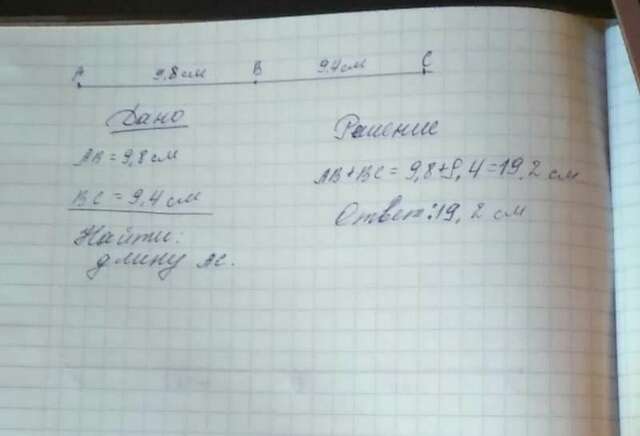 A 9,8 см B 9,4 см C
Дано
AB = 9,8 см
BC = 9,4 см
Найти:
длину AC.
Решение
AB+BC = 9,8+9,4=19,2 см
Ответ: 19,2 см